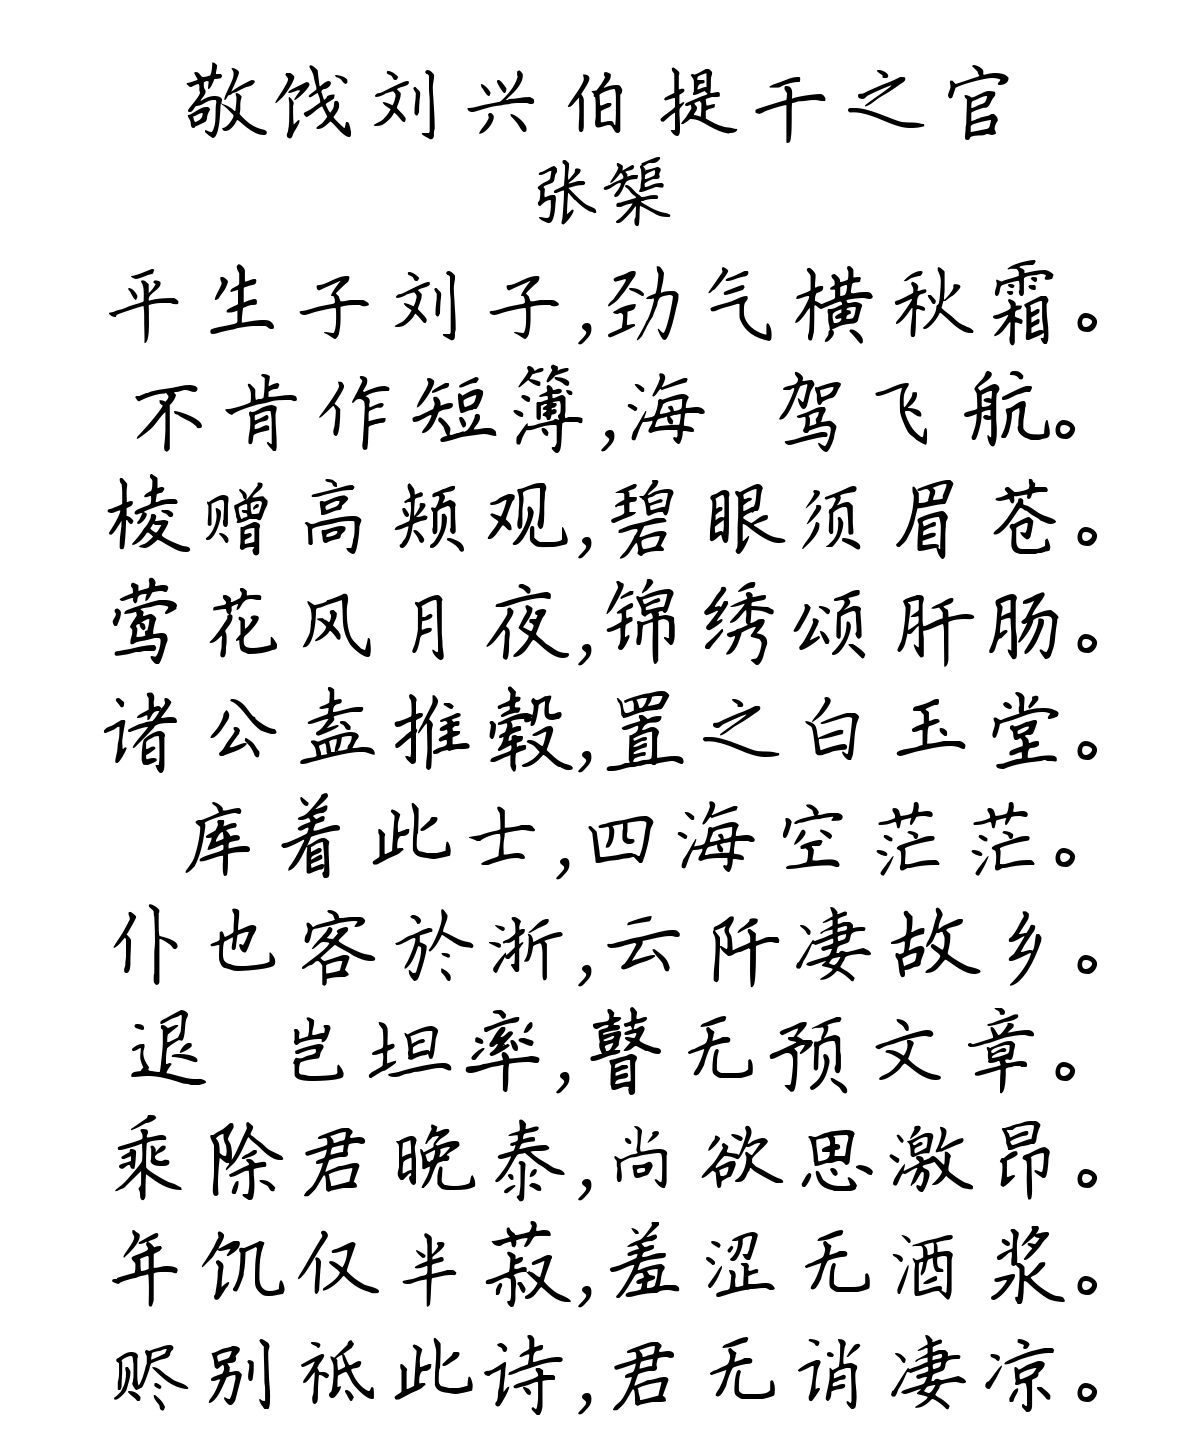 敬饯刘兴伯提干之官
张榘
平生子刘子,劲气横秋霜。
不肯作短簿,海 驾飞航。
棱赠高颊观,碧眼须眉苍。
莺花风月夜,锦绣颂肝肠。
诸公盍推毂,置之白玉堂。
库着此士,四海空茫茫。
仆也客於浙,云阡凄故乡。
退 岂坦率,瞽无预文章。
乘除君晚泰,尚欲思激昂。
年饥仅半菽,羞涩无酒浆。
赆别祗此诗,君无诮凄凉。